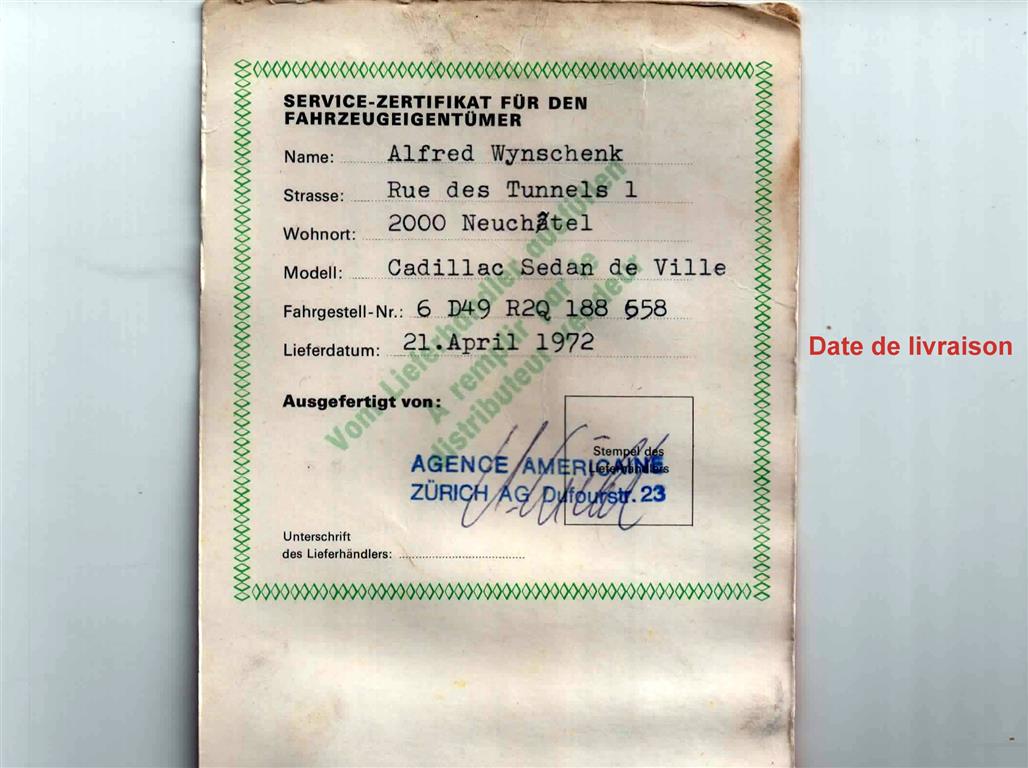 SERVICE-ZERTIFIKAT FÜR DEN
FAHRZEUGEIGENTÜMER
Name: Alfred Wynschenk
Strasse: Rue des Tunnels 1
Wohnort: 2000 Neuchâtel
Modell: Cadillac Sedan de Ville
Fahrgestell-Nr.: 6 D49 R2Q 188 658
Lieferdatum: 21.April 1972
Date de livraison
Vom Lieferhändler auszufüllen
A remplir par le
distributeur vendeur
Ausgefertigt von:
Stempel des
Lieferhändlers
AGENCE AMERICAINE
ZÜRICH AG Dufourstr. 23
Unterschrift
des Lieferhändlers: